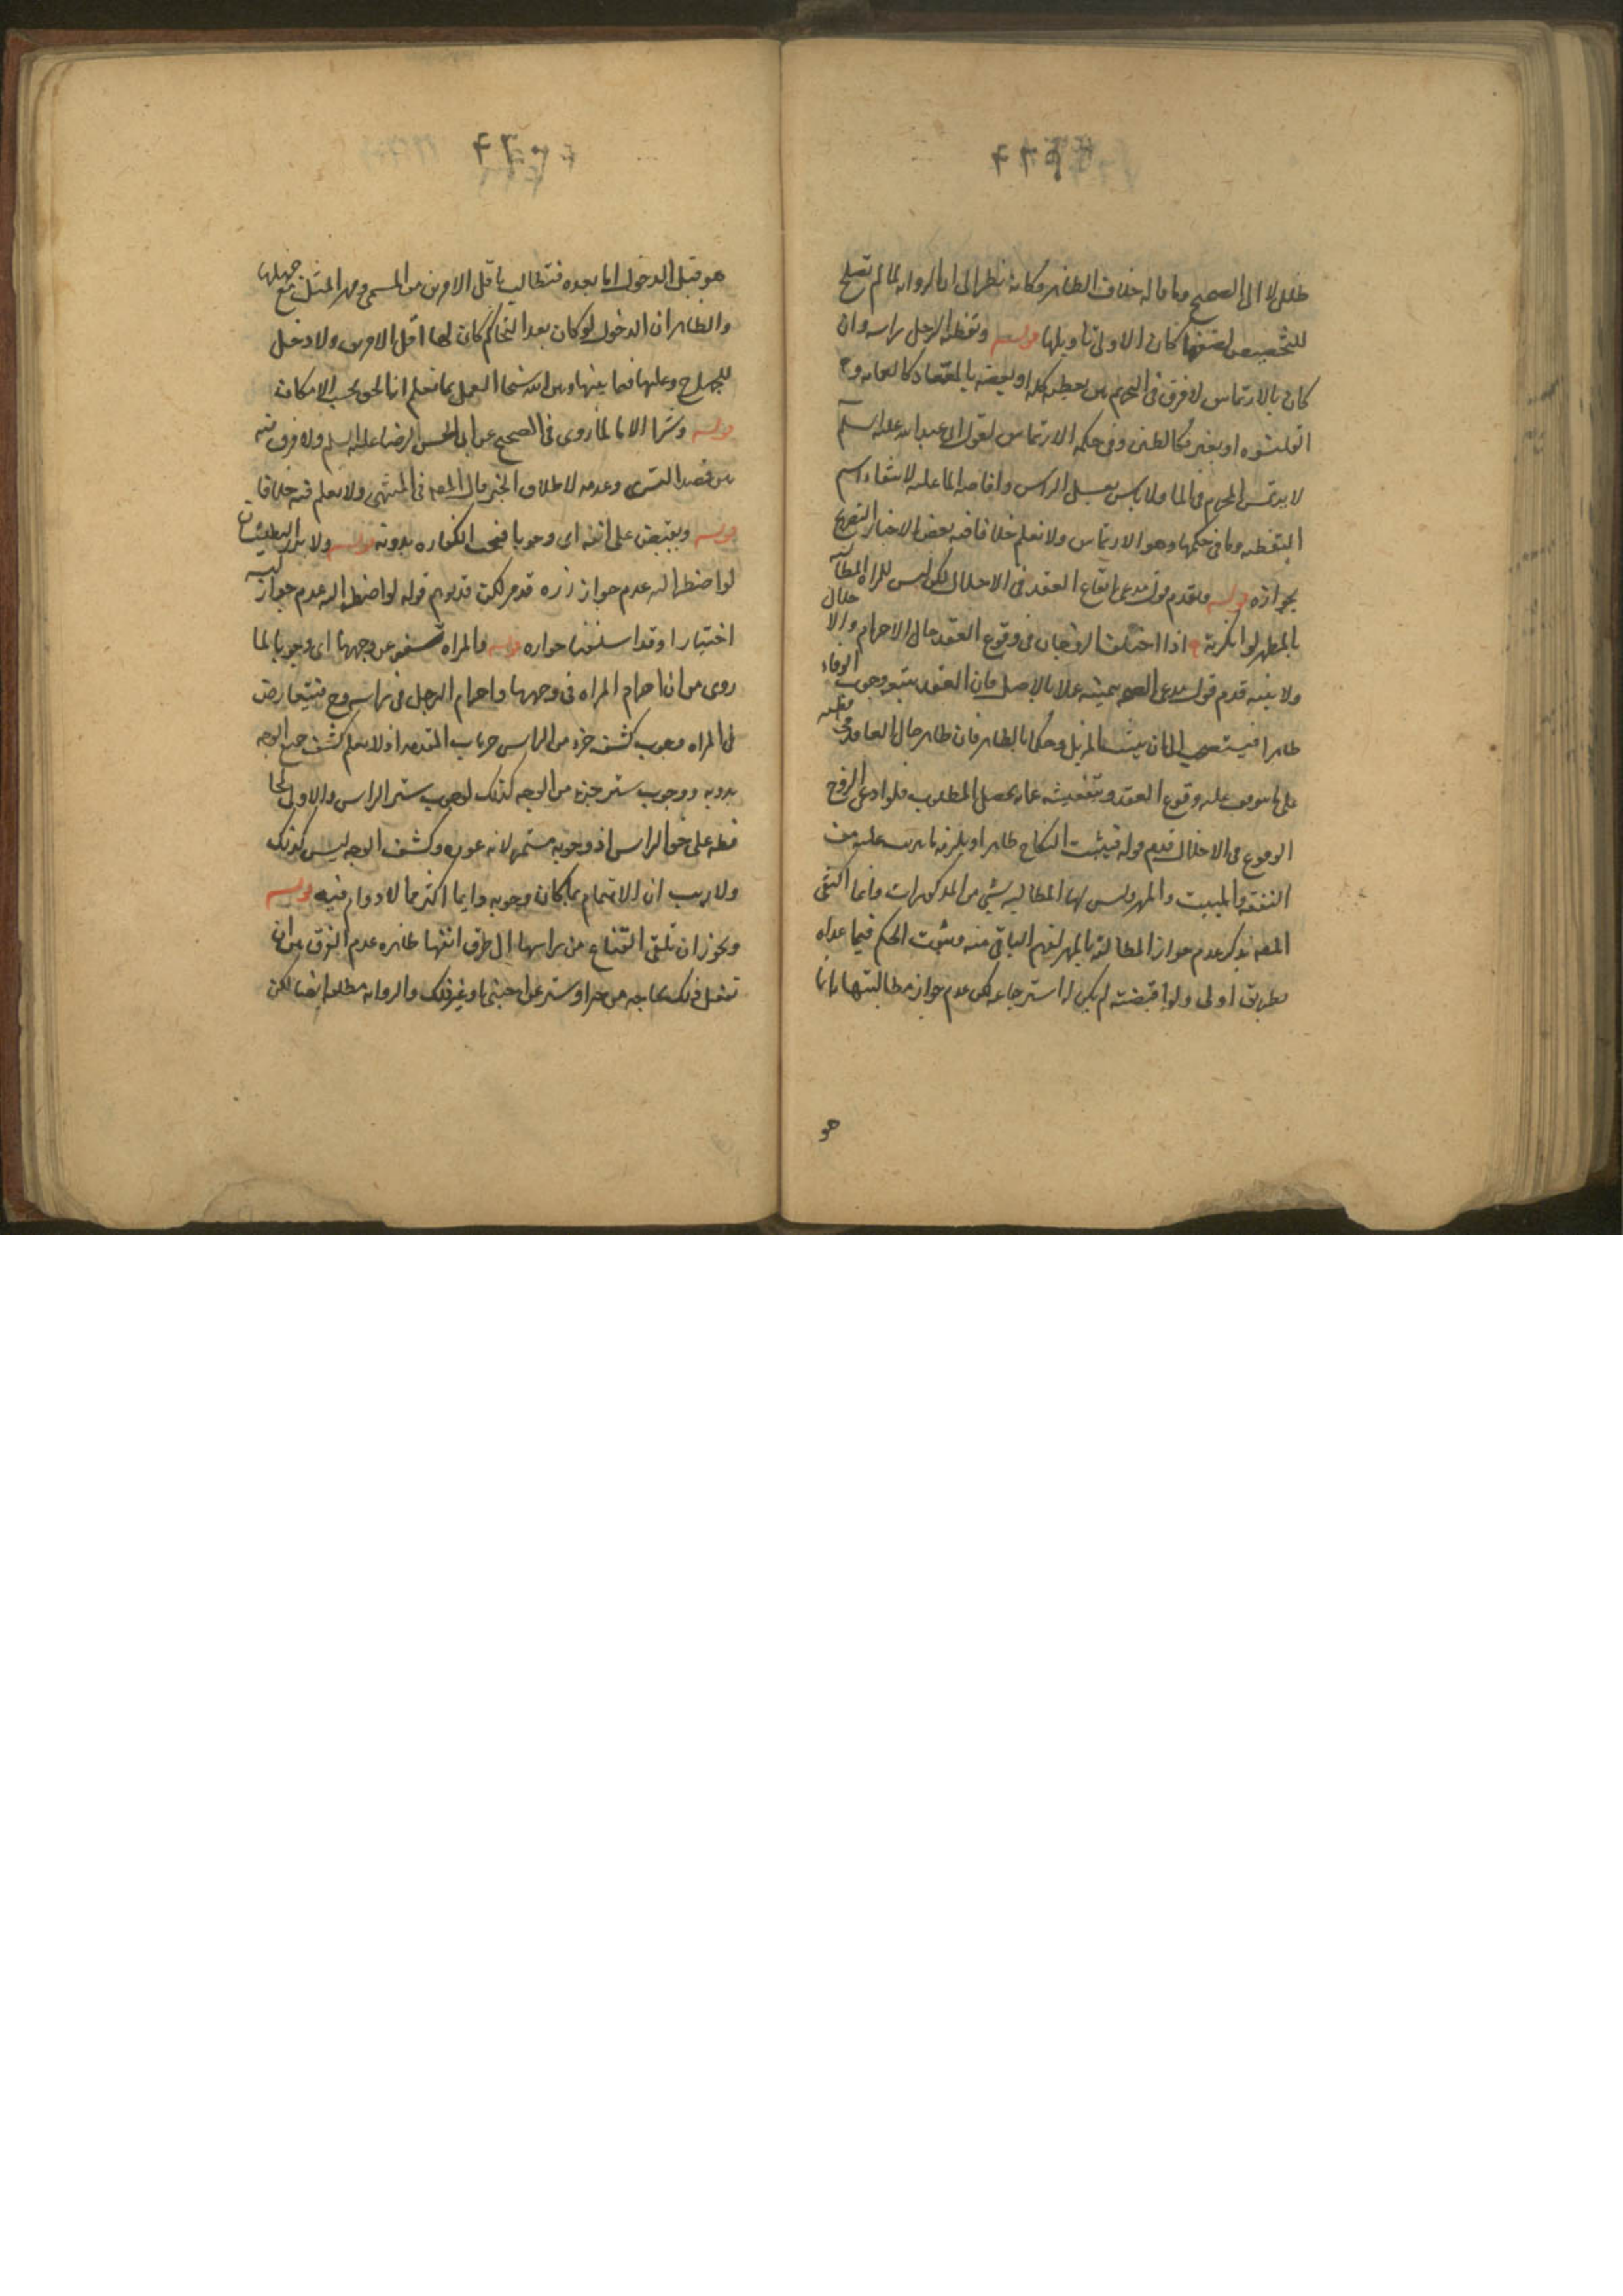 ظلل لا الى الصحيح وما قاله خلاف الظاهر وكانه نظر الى ان الروايه لما لم تصلح
للتخصيص لضعفها كان الاولى تاويلها قوله وتغطيه الرجل راسه وان
كان بالارتماس لا فرق في التحريم بين تغطيه كله او بعضه بالمعتاد كالعمامه و
القلنسوه او بغيره كالطين وفي حكمه الارتماس لقول ابي عبد الله عليه السلم
لا يرتمس المحرم في الما ولا باس بغسل الراس وافاضه الما عليه لانتفاء اسم
التغطيه وما في حكمها وهو الارتماس ولا نعلم خلافا فيه بعض الاخبار التصريح
بجوازه قوله ويقدم قول مدعي ايقاع العقد في الاحلال لكن ليس للمراه المطالبه
بالمهر لو انكرته اذا اختلف الزوجان في وقوع العقد حال الاحرام والاحلال
ولا بينه قدم قول مدعي الصحه بيمينه عملا بالاصل فان العقد يتبعه وجوب الوفاء
ظاهرا فيستصحب الى ان يثبت المزيل وحكما بالظاهر فان ظاهر حال العاقد
على ما يتوقف عليه وقوع العقد وتفتيشه عما به يحصل المطلوب فلو ادعى الزوج
الوقوع في الاحلال قدم قوله فيثبت النكاح ظاهرا ويلزمه ما يترتب عليه من
النفقه والمبيت والمهر وليس لها المطالبه بشي من المذكورات وانما اكتفى
المصنف بذكر عدم جواز المطالبه بالمهر لفهم الباقي منه وثبوت الحكم فيما عداه
بطريق اولى ولو قبضته لم يكن له استرجاعه لكن عدم جواز مطالبتها انما
هو
هو قبل الدخول اما بعده فتطالب باقل الامرين من المسمى ومهر المثل مع جهلها
والظاهر ان الدخول لو كان بعد التحاكم كان لها اقل الامرين ولا دخل
للجهل ح وعليها فيما بينها وبين الله سبحانه العمل بما تعلم انه الحق بحسب الامكان
قوله وشرا الاما لما روى في الصحيح عن ابي الحسن الرضا عليه السلم ولا فرق فيه
بين قصد التسرى وعدمه لاطلاق الخبر قال المصنف في المنتهى ولا نعلم فيه خلافا
قوله ويقبض على انفه اى وجوبا فيجب الكفاره بدونه قوله ولا يزر الطيلسان
لو اضطر اليه عدم جواز زره قد مر لكن قد يوهم قوله لو اضطر اليه عدم جواز لبسه
اختيارا وقد اسلفنا جوازه قوله والمراه تسفر عن وجهها اى وجوبا لما
روى من ان احرام المراه في وجهها واحرام الرجل في راسه وح فيتعارض
في المراه وجوب كشف جزء من الراس من باب المقدمه اذ لا يعلم كشف جميع الوجه
بدونه ووجوب ستر جزء من الوجه كذلك لوجوب ستر الراس والاولى المحا
فظه على حق الراس اذ وجوبه مستمر لانه عوره وكشف الوجه ليس كذلك
ولا ريب ان الاهتمام بما كان وجوبه دايما اكثر مما لا دوام فيه قوله
ويجوز ان تلقى القناع من راسها الى طرف انفها ظاهره عدم الفرق بين ان
تفعل ذلك لحاجه من حر او ستر عن اجنبي او غير ذلك والروايه مطلقه ايضا لكن